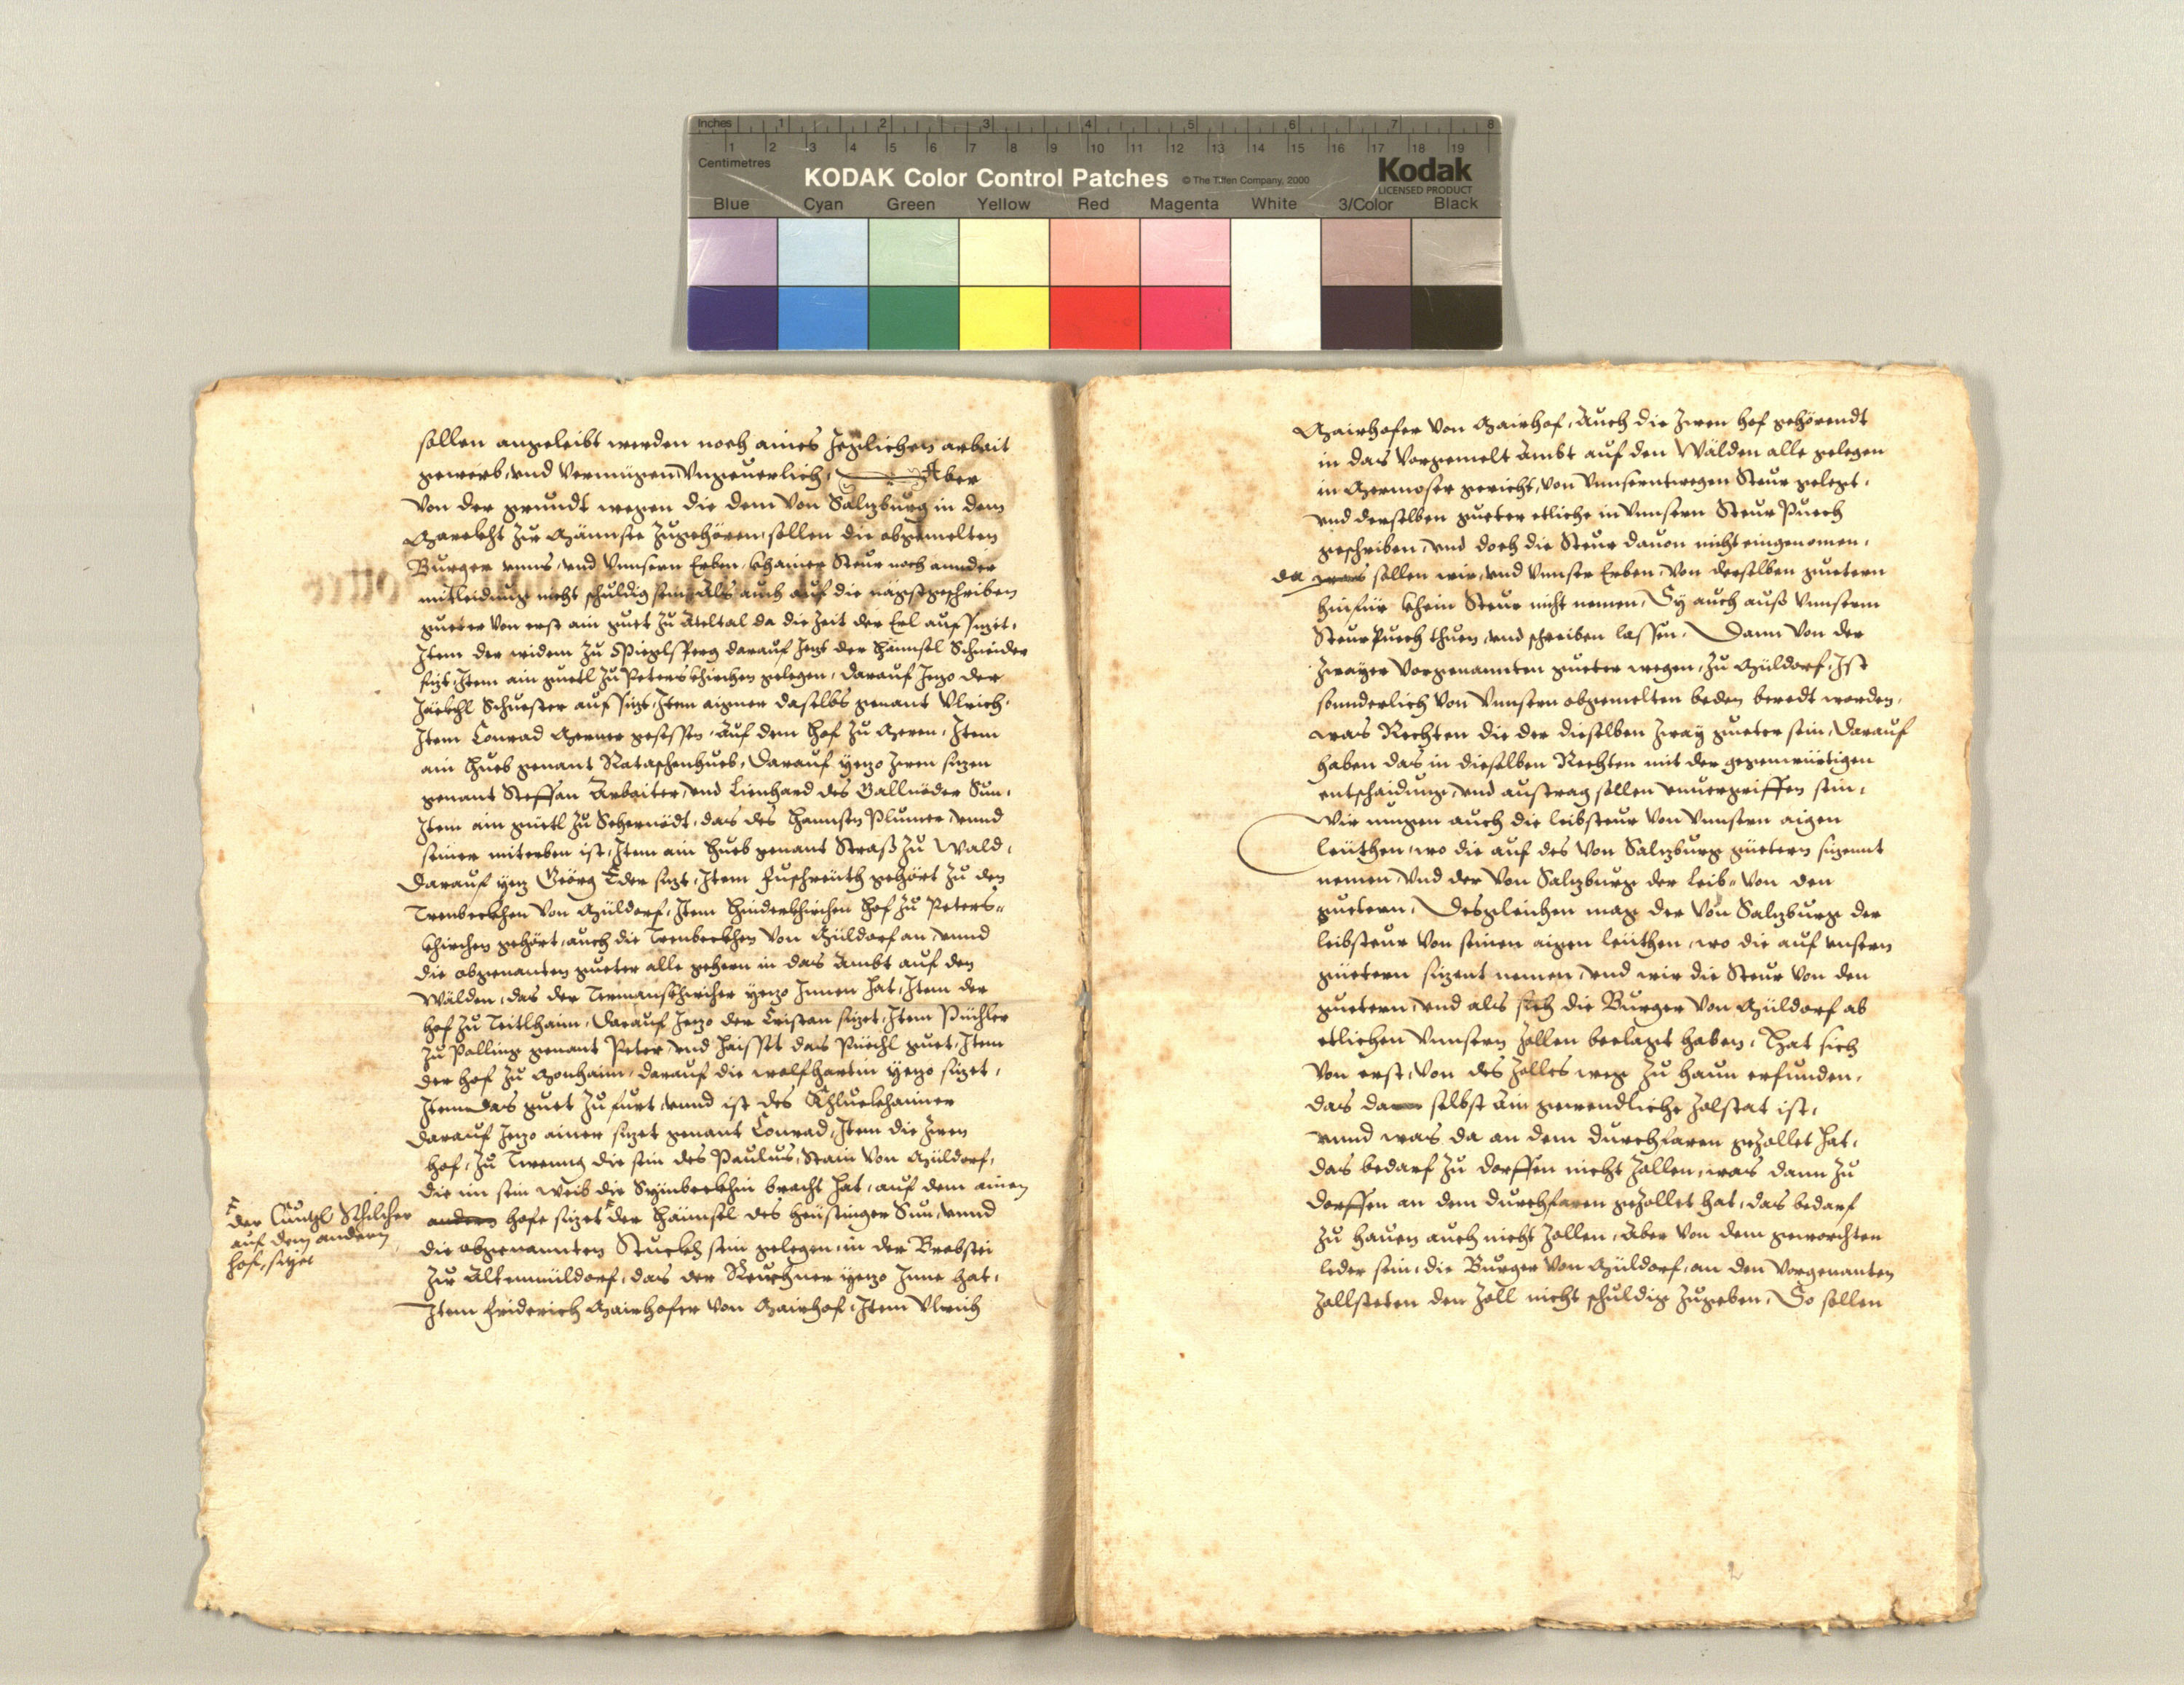 Inches 1 2 3 4 5 6 7 8
1 2 3 4 5 6 7 8 9 10 11 12 13 14 15 16 17 18 19
Centimetres
KODAK Color Control Patches © The Tiffen Company, 2000
Kodak
LICENSED PRODUCT
Blue Cyan Green Yellow Red Magenta White 3/Color Black
sollen angeleibt werden noch aines jeglichen arbait
gewerb, vnd vermügen, vngeuerlich, Aber
Von der grundt wegen die dem Von Salzburg in dem
zugehören, sollen die obgemelten
Burger vnns, vnd vnnsern Erben, khainer Steur noch annder
mitleidung nicht schuldig sein, Als auch auf die nägstgeschriben
gueter Von erst ain guet zu Ateltal da die Zeit der Erl auf sitzt,
Item der widem zu Spieglsperg darauf Jetz der Hännsel Schneider
sitzt, Item ain guetl zu Peterskhirchen gelegen, darauf Jetzo der
Jäckhl Schuester auf sitzt, Item aigner daselbs genant Vlrich,
Item Conrad Gerner gesessen, Auf dem Hof zu Geren, Item
ain Hueb genant Rataschenhueb, Darauf yetzo zwen sitzen
genant Steffan Arbaiter, vnd Lienhard des Gallnöder Sun,
Item ain guetl zu Schernödt, das des Hannsen Plumer, vnnd
seiner miterben ist, Item ain Hueb genant Straß zu Wald,
Darauf yetz Geörg Eder sitzt, Item Fuchsreüth gehört zu den
Trenbeckhen Von Müldorf, Item Hinderkhirchen Hof zu Peters-
khirchen gehört, auch die Trenbeckhen Von Müldorf an, vnnd
die obgenanten gueter alle gehern in das Ambt auf den
Wälden, das der yetzo Innen hat, Item der
Hof zu Teitlhaim, Darauf Jetzo der Cristan sitzet, Item Püchler
zu Polling genant Peter, vnd haisset das Püechl guet, Item
der Hof zu Monhaim, darauf die wolfhartin yetzo sitzet,
Item das guet zu Furt, vnnd ist des
Darauf Jetzo ainer sitzet genant Conrad, Item die zwen
Hof, zu die sein des Paulus, Stain Von Müldorf,
die im sein weib die bracht hat, auf dem ainen
der Cuntzl Schilcher
auf dem andern
hof, sitzet
andern hofe sitzet der Hännsel des Sun, vnnd
die obgenannten Stuckh sein gelegen, in der Brobstei
zu Altenmüldorf, das der yetzo Inne hat,
Item Friderich Mairhofer Von Mairhof, Item Vlrich
Mairhofer Von Mairhof, Auch die zwen Hof gehörendt
in das Vorgemelt Ambt auf den Wälden alle gelegen
in Mermoser gericht, Von Vnnserntwegen Steur gelegt,
vnd derselben gueter etliche in Vnnsern Steur Puech
geschriben, vnd doch die Steur dauon nicht eingenomen,
da was sollen wir, vnd Vnnser Erben, Von derselben guetern
hinfür khein Steur nicht nemen, Sy auch auß Vnnserm
Steur Puech thuen, vnd schreiben lassen, Dann Von der
zwayer Vorgenannten gueter wegen, zu Müldorf, Ist
sonnderlich Von Vnnsern obgemelten beden beredt worden,
was Rechten die der dieselben zway gueter sein, Darauf
haben das in dieselben Rechten mit der gegenwürtigen
entschaidung, vnd austrag sollen vnuergriffen sein,
Wir mugen auch die leibsteur Von Vnnsern aigen
leüthen, wo die auf des Von Salzburg güetern sitzennt
nemen, Vnd der Von Salzburg der leib- Von den
guetern, Desgleichen mag der Von Salzburg der
leibsteur Von seinen aigen leüthen, wo die auf vnsern
güetern sitzent nemen, vnd wir die Steur Von den
guetern, vnd als sich die Burger Von Müldorf ab
etlichen Vnnsern Zollen beclagt haben, Hat sich
Von erst, Von des Zolles weg zu Haun erfunden,
das da selbst Ain gewendliche Zolstat ist,
vnnd was da an dem durchfaren gezollet hat,
das bedarf zu Dorffen nicht Zollen, was dann zu
Dorffen an dem durchfaren gezollet hat, das bedarf
zu Hauen auch nicht Zollen, Aber Von dem geworchten
leder sein, die Burger Von Müldorf, an den Vorgenanten
Zollsteten den Zoll nicht schuldig zugeben, So sollen
2